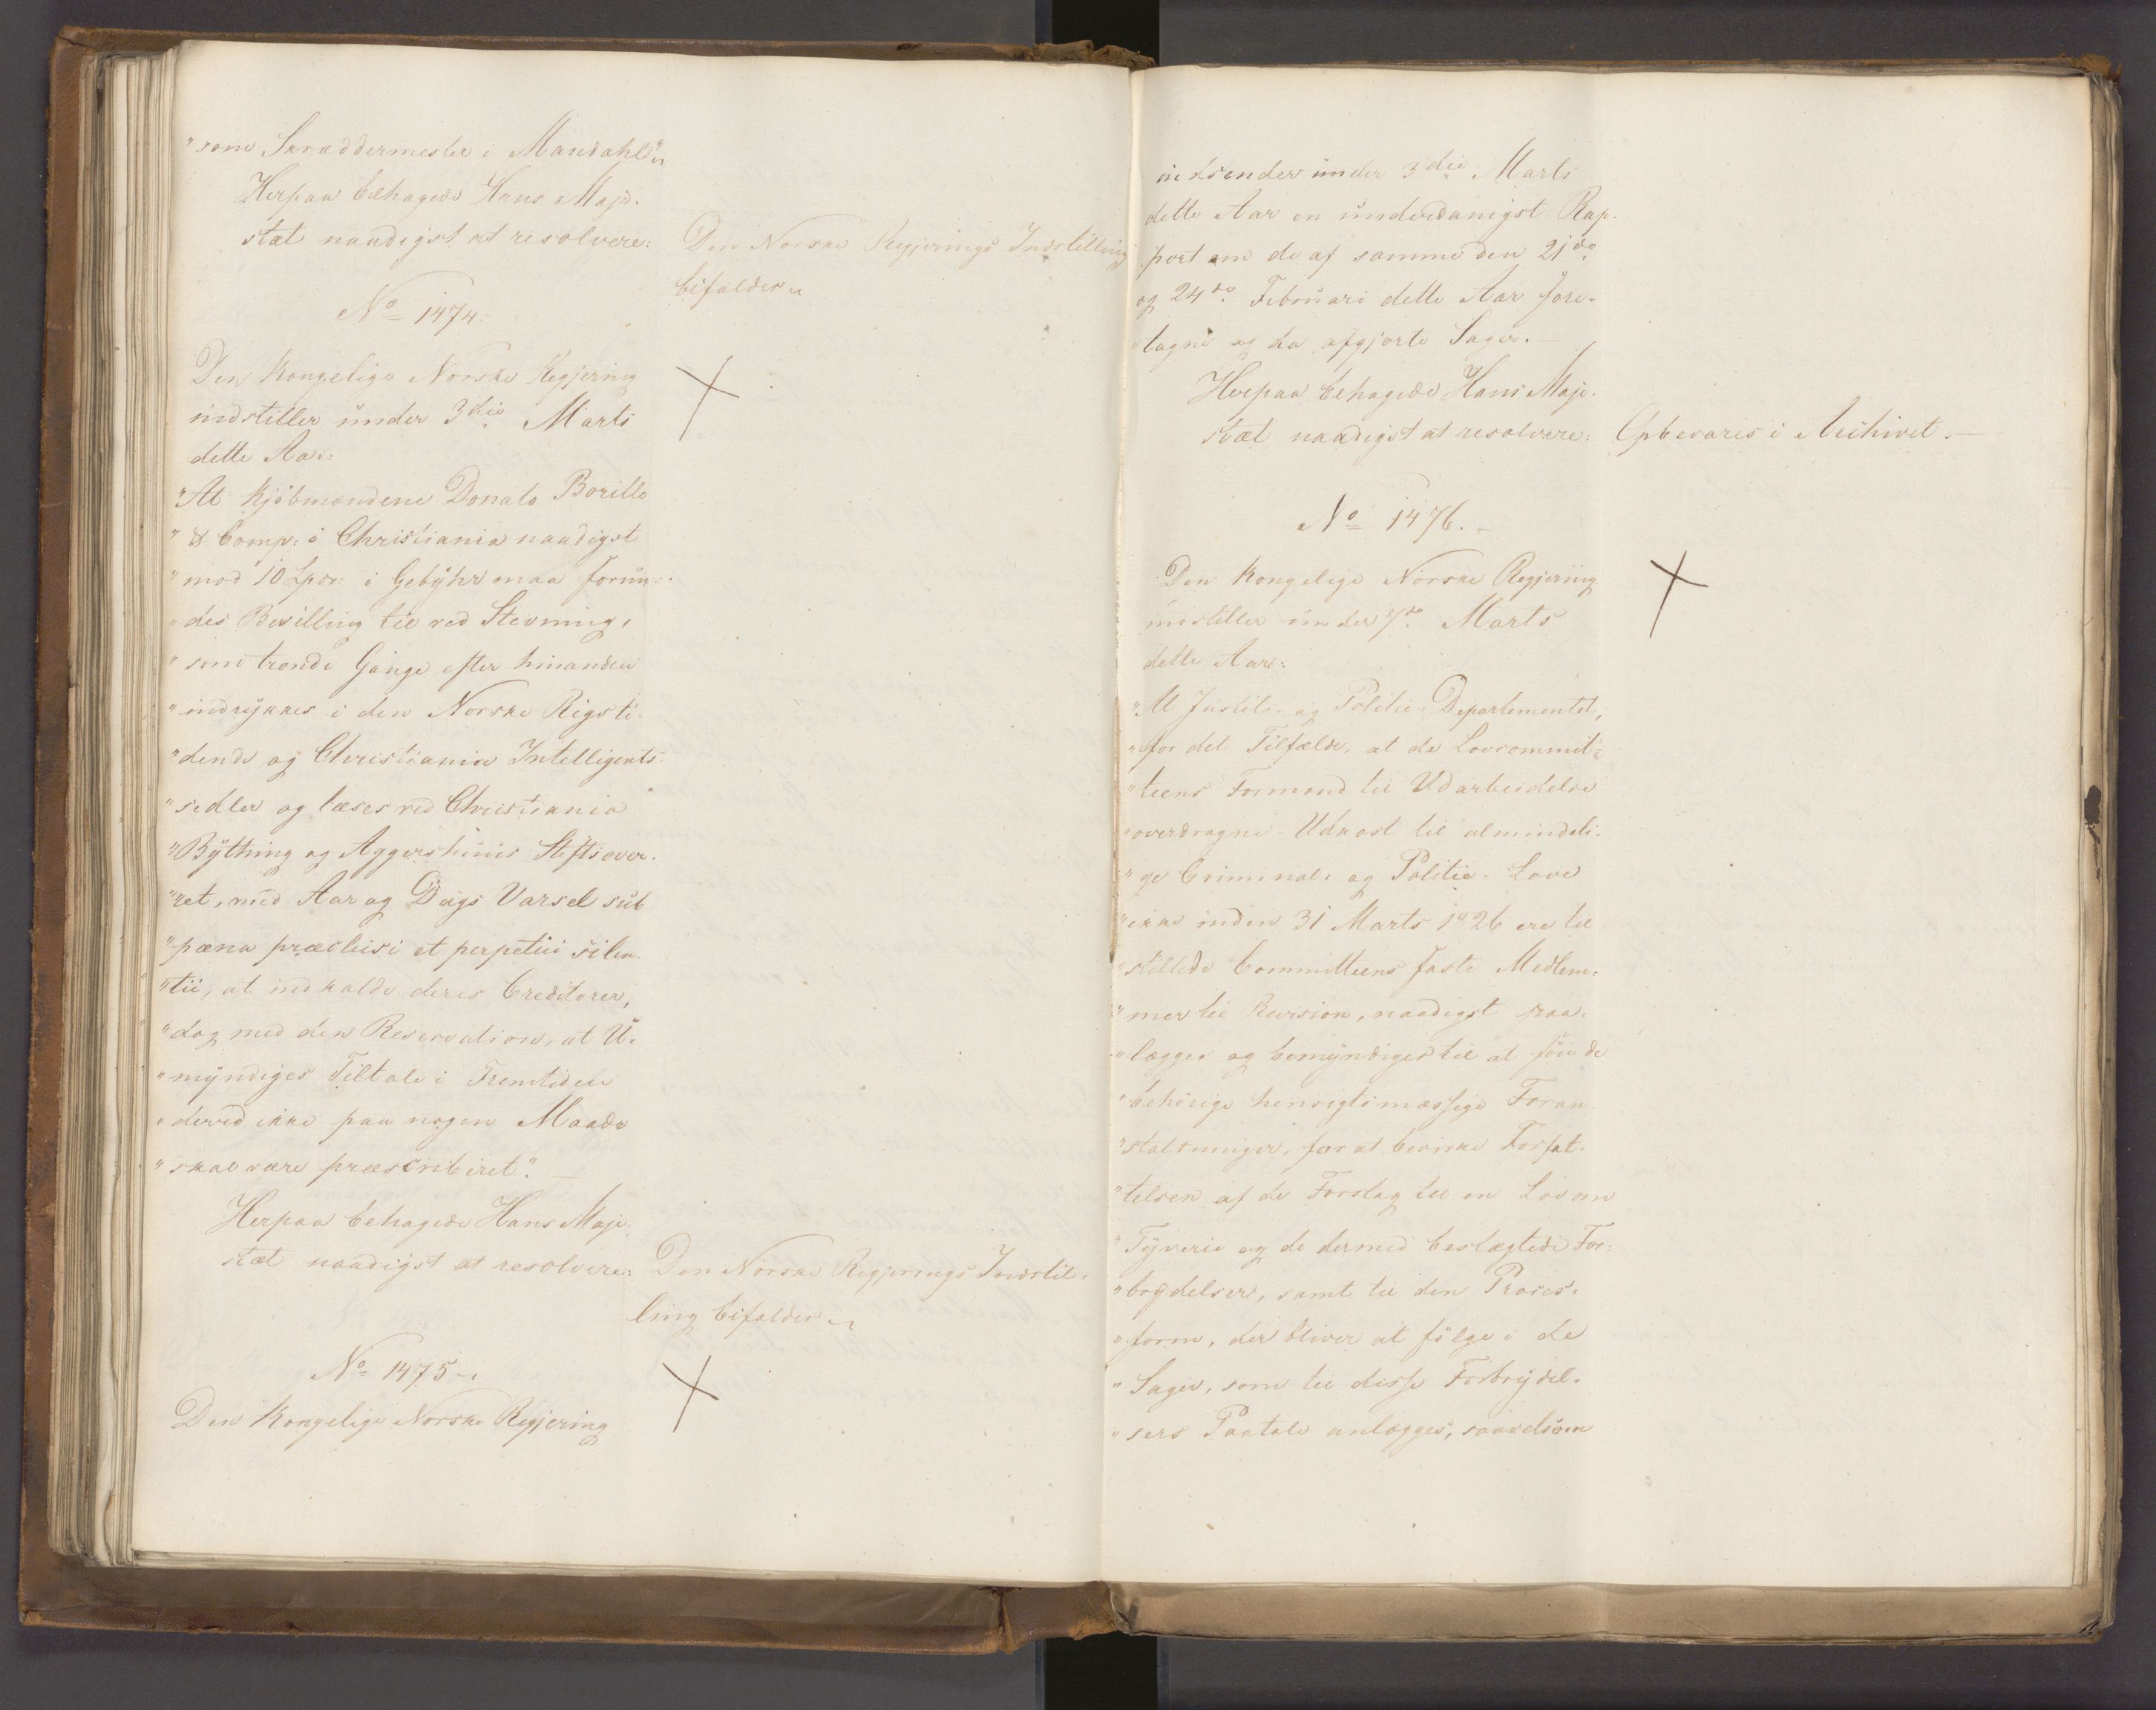 "som Skræddermester i Mandahl"
Herpaa behagede Hans Maje-
stæt naadigst at resolvere:
Den Norske Regjerings Indstilling
bifaldes
No 1474.
Den Kongelige Norske Regjering
indstiller under 3die Marts
dette Aar:
"At Kjöbmændene Donato Borillo
"& Comp: i Christiania naadigst
"mod 10 Spdr: i Gebÿhr maa forun-
"des Bevilling til ved Stevning,
"som trende Gange efter hinanden
"indrÿkkes i den Norske Rigsti-
"dende og Christiania Intelligents-
"sedler og læses ved Christiania
"Bÿthing og Aggershuus Stiftsover-
"ret, med Aar og Dags Varsel sub
"pæna præclusi et perpetui silen-
"tii, at indkalde deres Creditorer,
"dog med den Reservation, at U-
"mÿndiges Tiltale i Fremtiden
"derved ikke paa nogen Maade
"skal være præscriberet".
Herpaa behagede Hans Maje-
stæt naadigst at resolvere:
Den Norske Regjerings Indstil-
ling bifaldes
No 1475
Den Kongelige Norske Regjering
indsender under 3die Marts
dette Aar en underdanigst Rap-
port om de af samme den 21de
og 24de Februari dette Aar fore-
tagne og da afgjorte Sager.
Herpaa behagede Hans Maje-
stæt naadigst at resolvere:
Opbevares i Archivet.
No 1476.
Den Kongelige Norske Regjering
indstiller under 7de Marts
dette Aar:
"At Justits- og Politie-Departementet,
"for det Tilfælde, at de Lovcommit-
"teens Formand til Udarbeidelse
"overdragne Udkast til almindeli-
"ge Criminal- og Politie-Love
"ikke inden 31 Marts 1826 ere til-
"stillede Committeens faste Medlem-
"mer til Revision, naadigst paa-
"lægges og bemÿndiges til at föie de
"behörige hensigtsmæssige Foran-
"staltninger, for at bevirke Forfat-
"telsen af de Forslag til en Lov om
"Tÿverie og de dermed beslægtede For-
"brÿdelser, samt til den Proces-
"form, der bliver at fölge i de
"Sager, som til disse Forbrÿdel-
"sers Paatale anlægges, saavelsom